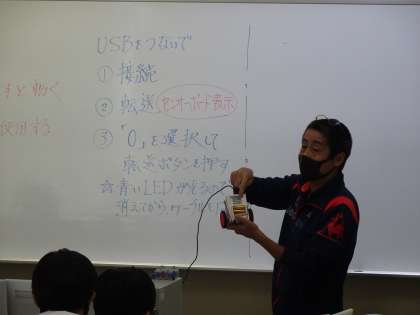 USBをつないで
① 接続
② 転送 センサーボード表示
③「0」を選択して
転送ボタンを押す
☆青いLEDが
消えてからケーブル
すと動く
使用する